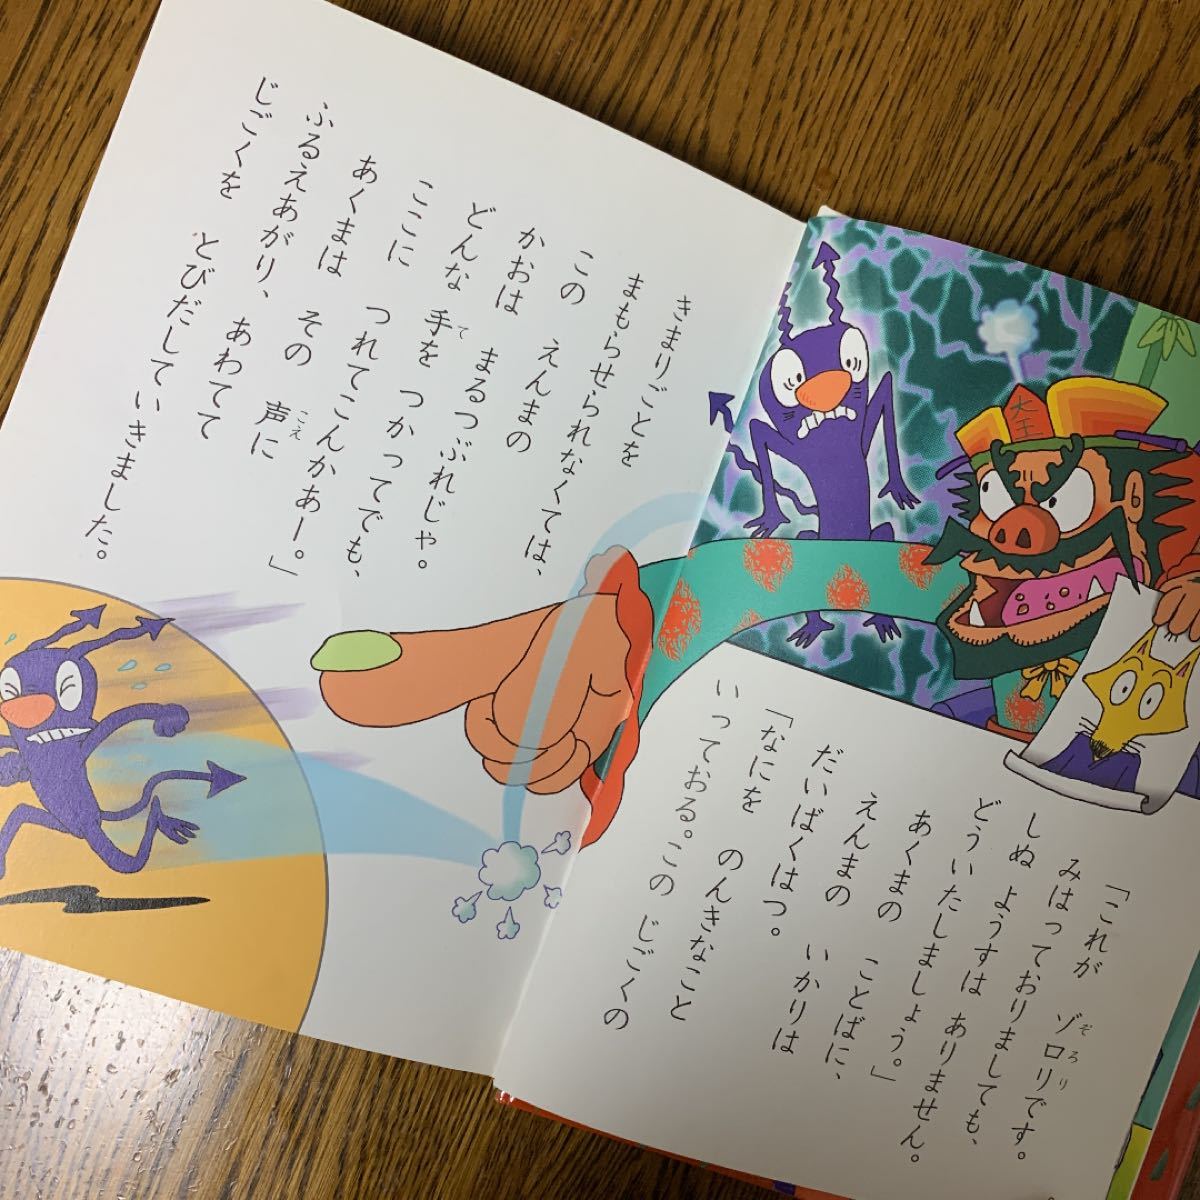 「これが ゾロリです。
ぞろり
みはっておりましても、
しぬ ようすは ありません。
どういたしましょう。」
あくまの ことばに、
えんまの いかりは
だいばくはつ。
「なにを のんきなこと
いっておる。この じごくの
きまりごとを
まもらせられなくては、
この えんまの
かおは まるつぶれじゃ。
どんな 手を つかってでも、
て
ここに つれてこんかあー。」
あくまは その 声に
こえ
ふるえあがり、 あわてて
じごくを とびだしていきました。
大王